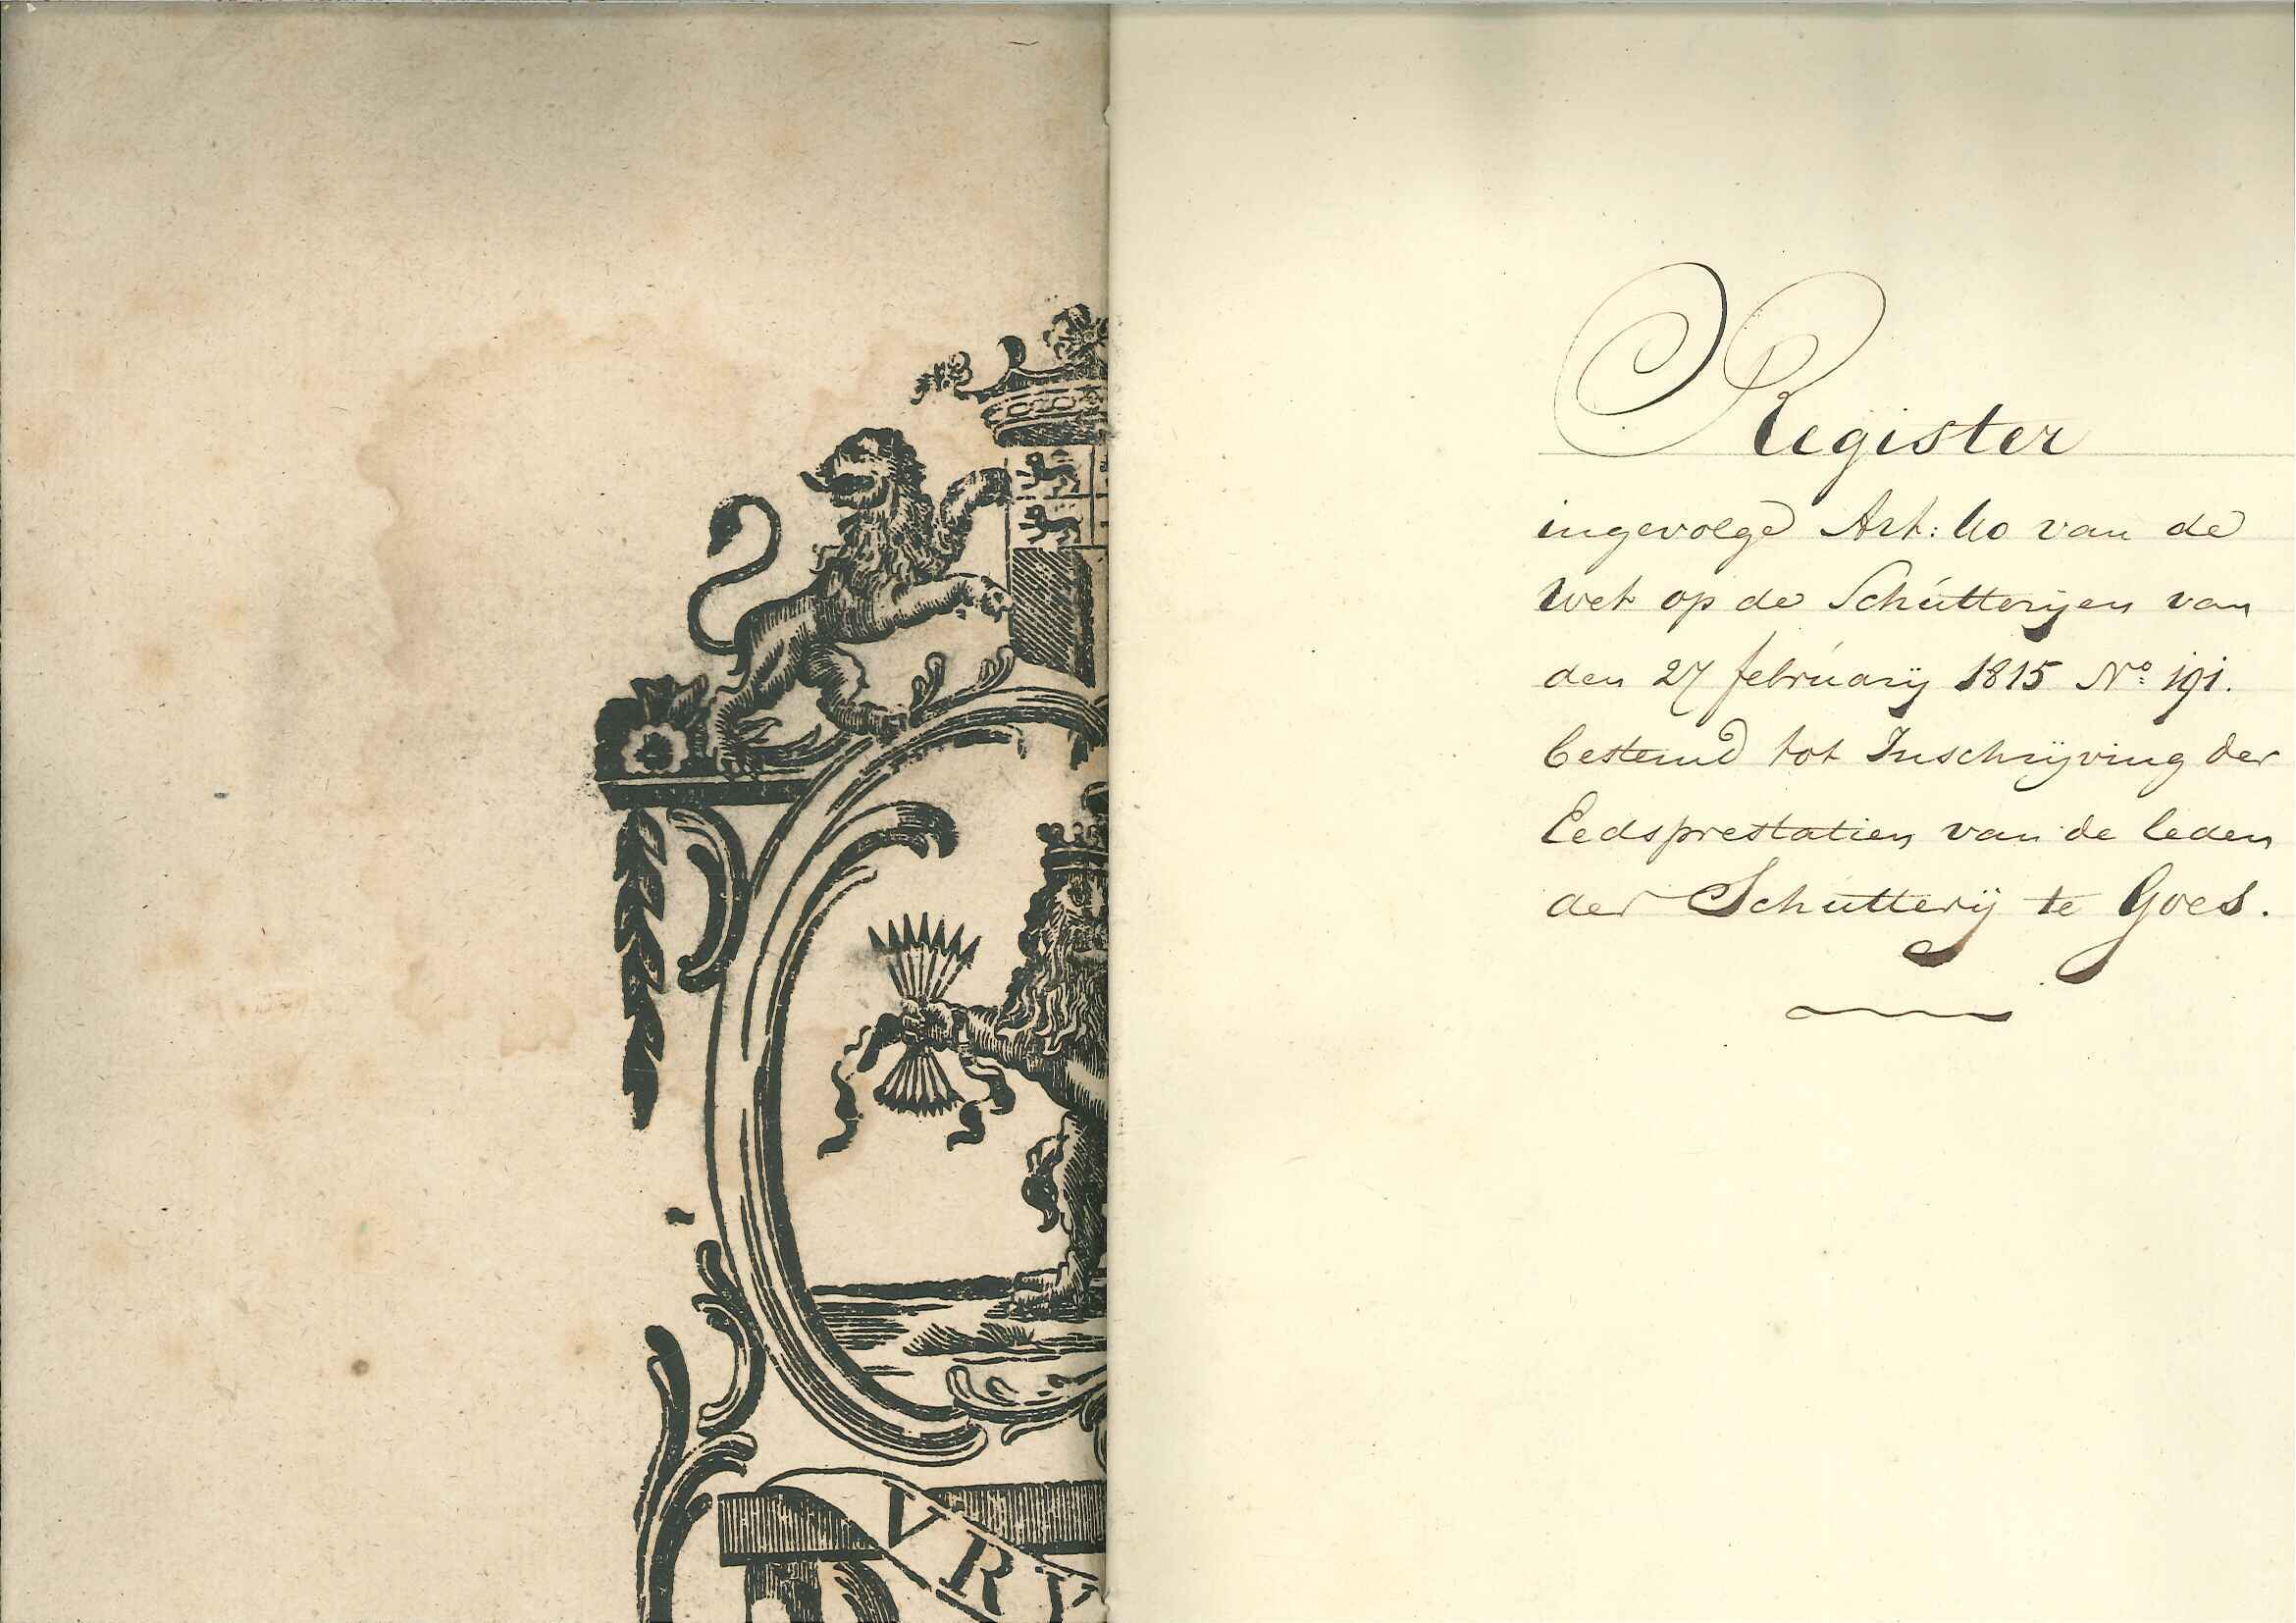 VRY
Register
ingevolge Art: 40 van de
Wet op de Schutterijen van
den 27 february 1815 No 191.
bestemd tot Inschrijving der
Eedsprestatien van de leden
der Schutterij te Goes.